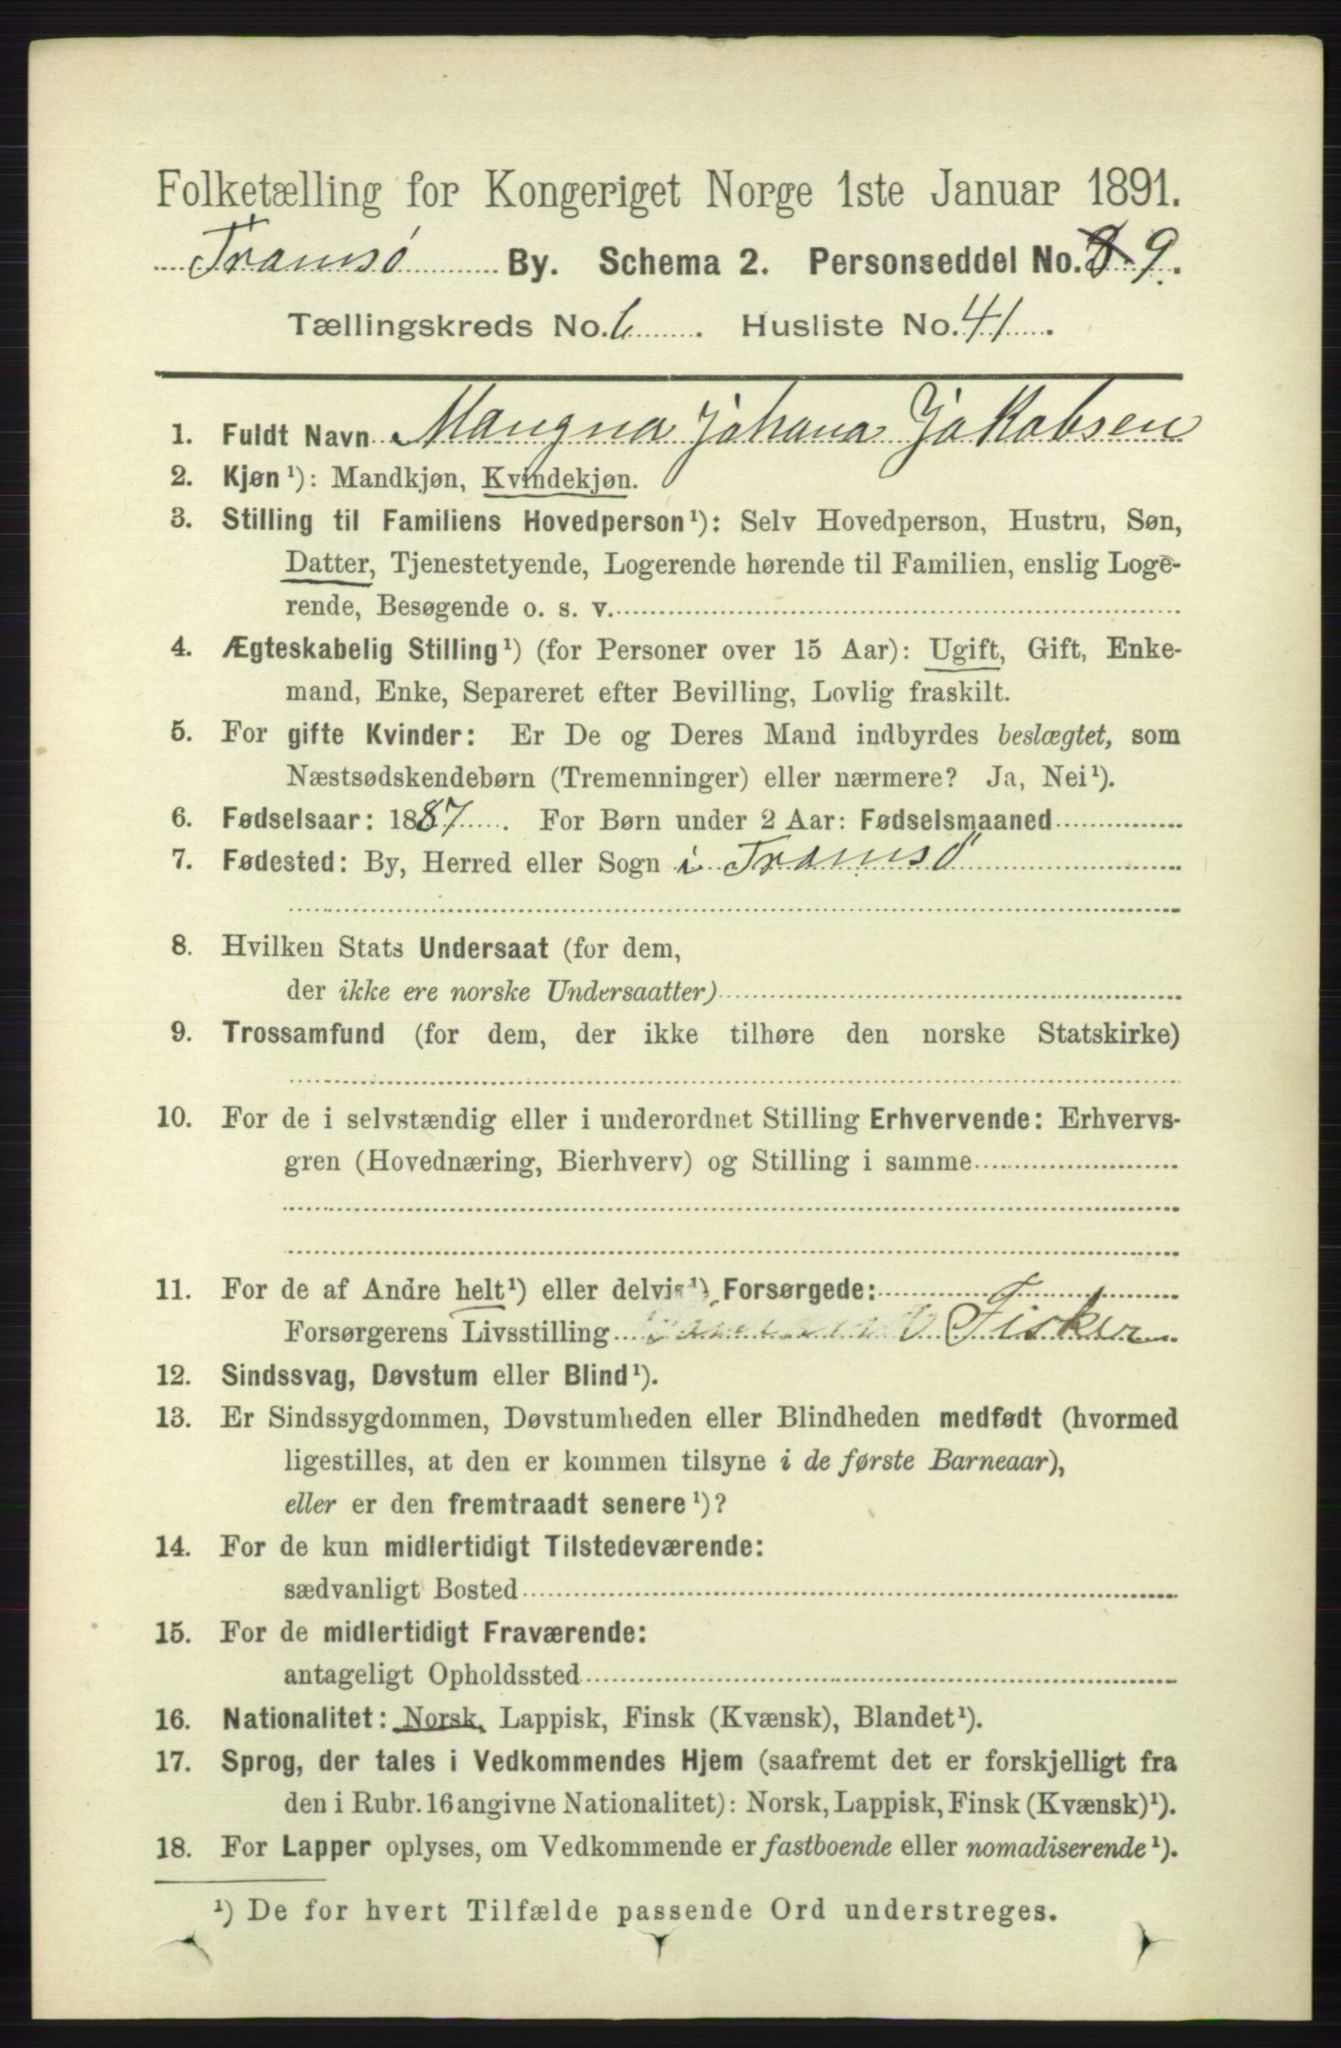 Folketælling for Kongeriget Norge 1ste Januar 1891.
Tromsø By. Schema 2. Personseddel No. 8 9.
Tællingskreds No. 6. Husliste No. 41.
1. Fuldt Navn Mangna Johana Jakobsen
2. Kjøn¹): Mandkjøn, Kvindekjøn.
3. Stilling til Familiens Hovedperson¹): Selv Hovedperson, Hustru, Søn,
Datter, Tjenestetyende, Logerende hørende til Familien, enslig Loge-
rende, Besøgende o. s. v.
4. Ægteskabelig Stilling¹) (for Personer over 15 Aar): Ugift, Gift, Enke-
mand, Enke, Separeret efter Bevilling, Lovlig fraskilt.
5. For gifte Kvinder: Er De og Deres Mand indbyrdes beslægtet, som
Næstsødskendebørn (Tremenninger) eller nærmere? Ja, Nei¹).
6. Fødselsaar: 1887. For Børn under 2 Aar: Fødselsmaaned
7. Fødested: By, Herred eller Sogn i Tromsø
8. Hvilken Stats Undersaat (for dem,
der ikke ere norske Undersaatter)
9. Trossamfund (for dem, der ikke tilhøre den norske Statskirke)
10. For de i selvstændig eller i underordnet Stilling Erhvervende: Erhvervs-
gren (Hovednæring, Bierhverv) og Stilling i samme
11. For de af Andre helt¹) eller delvis¹) Forsørgede:
Forsørgerens Livsstilling Fisker
12. Sindssvag, Døvstum eller Blind¹).
13. Er Sindssygdommen, Døvstumheden eller Blindheden medfødt (hvormed
ligestilles, at den er kommen tilsyne i de første Barneaar),
eller er den fremtraadt senere¹)?
14. For de kun midlertidigt Tilstedeværende:
sædvanligt Bosted
15. For de midlertidigt Fraværende:
antageligt Opholdssted
16. Nationalitet: Norsk, Lappisk, Finsk (Kvænsk), Blandet¹).
17. Sprog, der tales i Vedkommendes Hjem (saafremt det er forskjelligt fra
den i Rubr. 16 angivne Nationalitet): Norsk, Lappisk, Finsk (Kvænsk)¹).
18. For Lapper oplyses, om Vedkommende er fastboende eller nomadiserende¹).
¹) De for hvert Tilfælde passende Ord understreges.